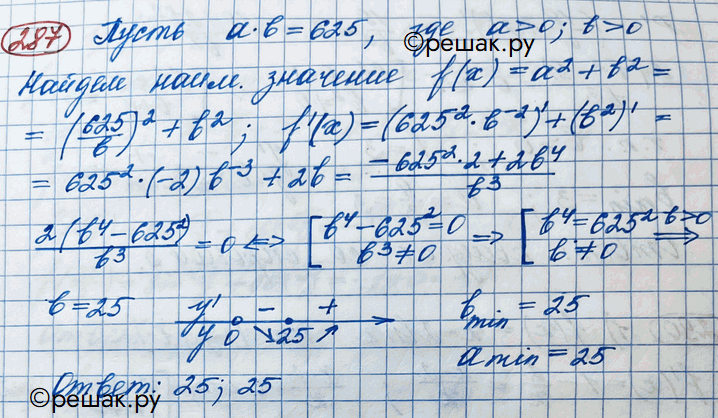 287 Пусть a·b = 625, где a>0; b>0
©решак.ру
Найдем наим. значение f(x) = a² + b² =
= (625/b)² + b²; f'(x) = (625²·b⁻²)' + (b²)' =
= 625²·(-2)b⁻³ + 2b = (-625²·2+2b⁴)/b³
2(b⁴-625²)/b³ = 0 <=> [b⁴-625²=0 b³≠0 => [b⁴=625² b≠0 b>0 =>
b=25 y' - + b min = 25
y 0 ↘ 25 ↗ a min = 25
Ответ: 25; 25
©решак.ру